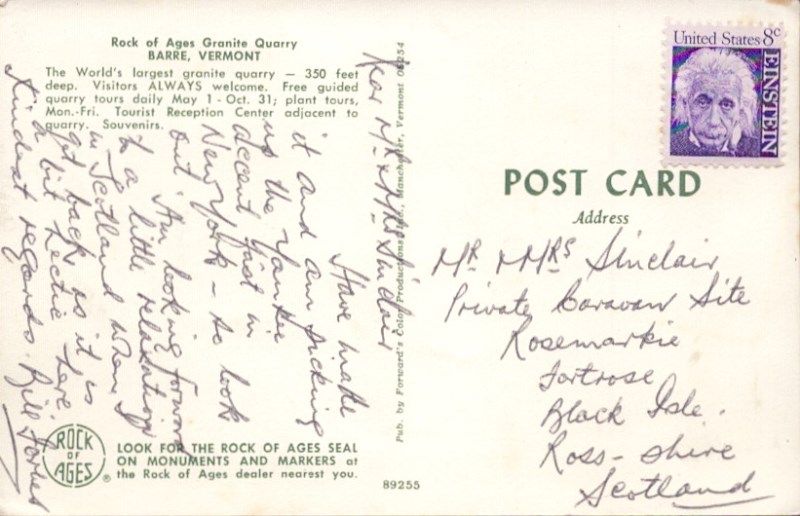 Rock of Ages Granite Quarry
BARRE, VERMONT
The World's largest granite quarry — 350 feet
deep. Visitors ALWAYS welcome. Free guided
quarry tours daily May 1 - Oct. 31; plant tours,
Mon.-Fri. Tourist Reception Center adjacent to
quarry. Souvenirs.
Dear Mr & Mrs Sinclair
Have made
it and am picking
up the Yankee
accent fast in
New York - so look
out
Am looking forward
to a little relaxation
in Scotland when I
get back as it is
a bit hectic here
Kindest regards. Bill Forbes
ROCK
OF
AGES
®
LOOK FOR THE ROCK OF AGES SEAL
ON MONUMENTS AND MARKERS at
the Rock of Ages dealer nearest you.
Pub. by Forward's Color Productions, Inc., Manchester, Vermont 05254
89255
United States 8c
EINSTEIN
POST CARD
Address
Mr & Mrs Sinclair
Private Caravan Site
Rosemarkie
Fortrose
Black Isle.
Ross-shire
Scotland